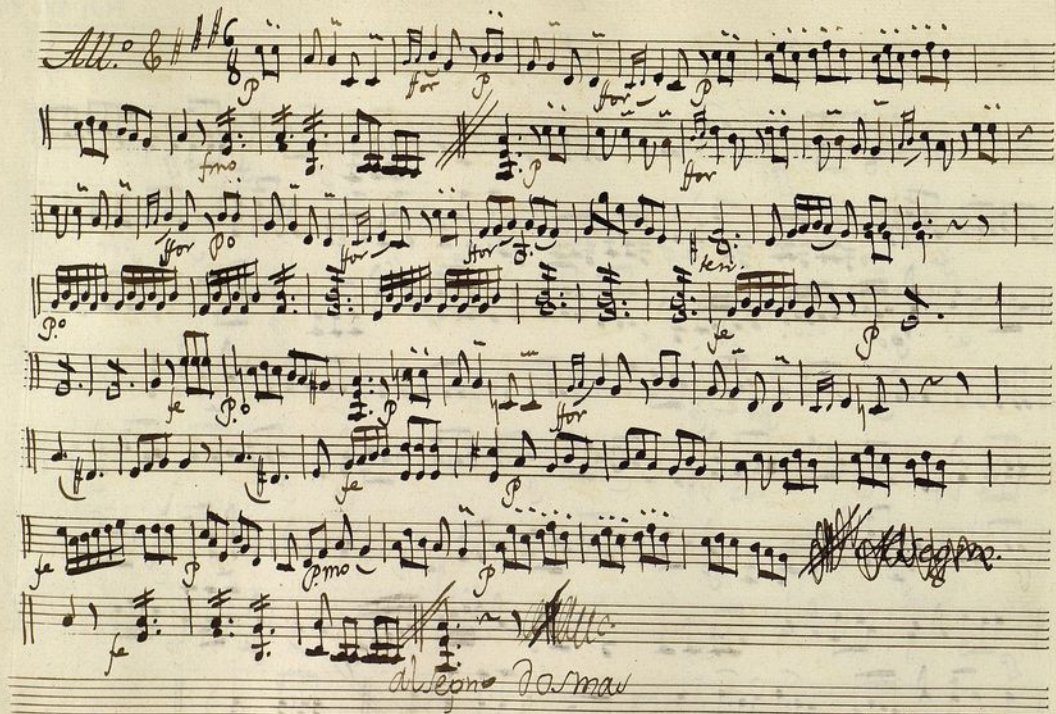 All.º 6 8
P for P for P
fmo P for
for Pº for for ten:
P.º fe P
fe P.º P for
fe P
fe P Pmo P
fe
al segno Dos mas